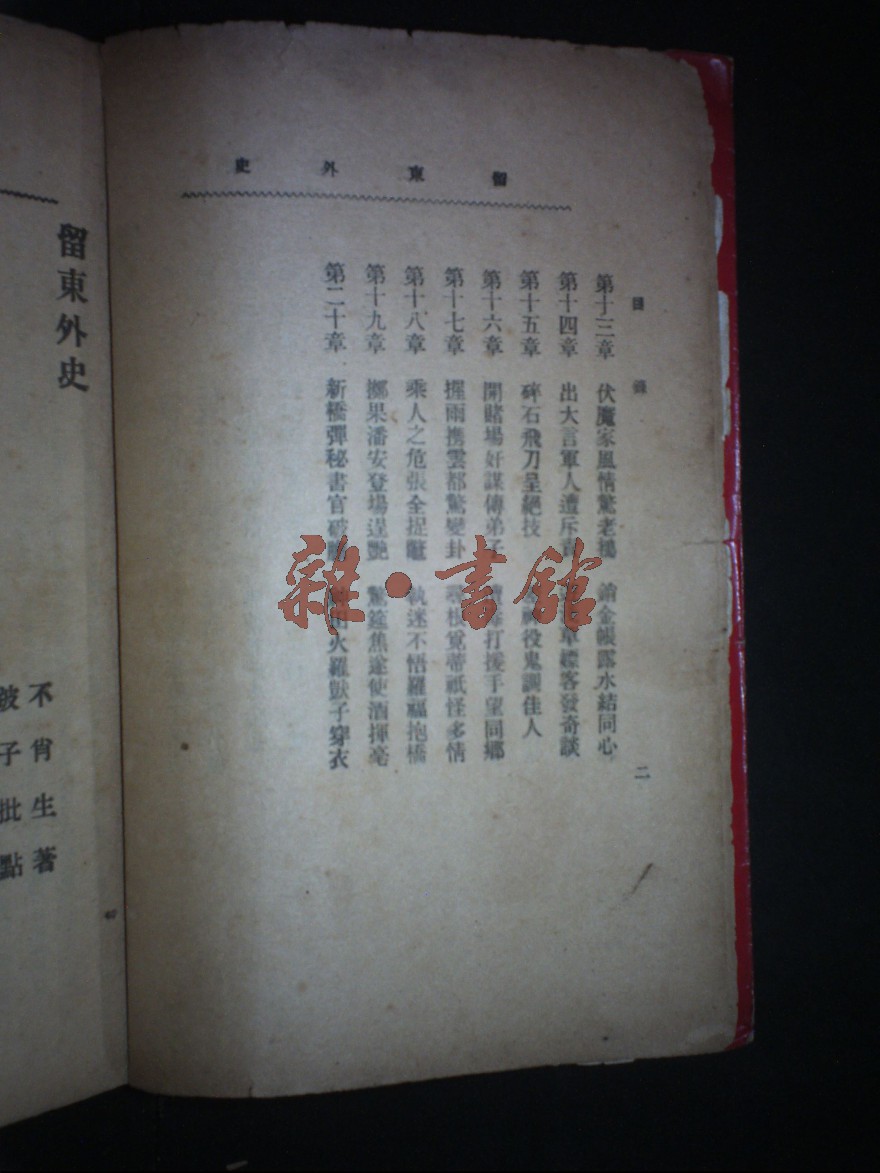 留東外史
目錄
二
第十三章 伏魔家風情驚老搗 銷金帳露水結同心
第十四章 出大言軍人遭斥 客發奇談
第十五章 碎石飛刀呈絕技 役鬼調佳人
第十六章 開賭場奸謀傳弟子 打援手望同鄉
第十七章 握雨携雲都驚變卦 尋枝覓蒂祇怪多情
第十八章 乘人之危張全捉鼈 執迷不悟羅福抱橋
第十九章 擲果潘安登場逞艷 驚筵焦遂使酒揮毫
第二十章 新橋彈秘書官破 田火羅獃子穿衣
留東外史
不肖生著
批點
雜·書館